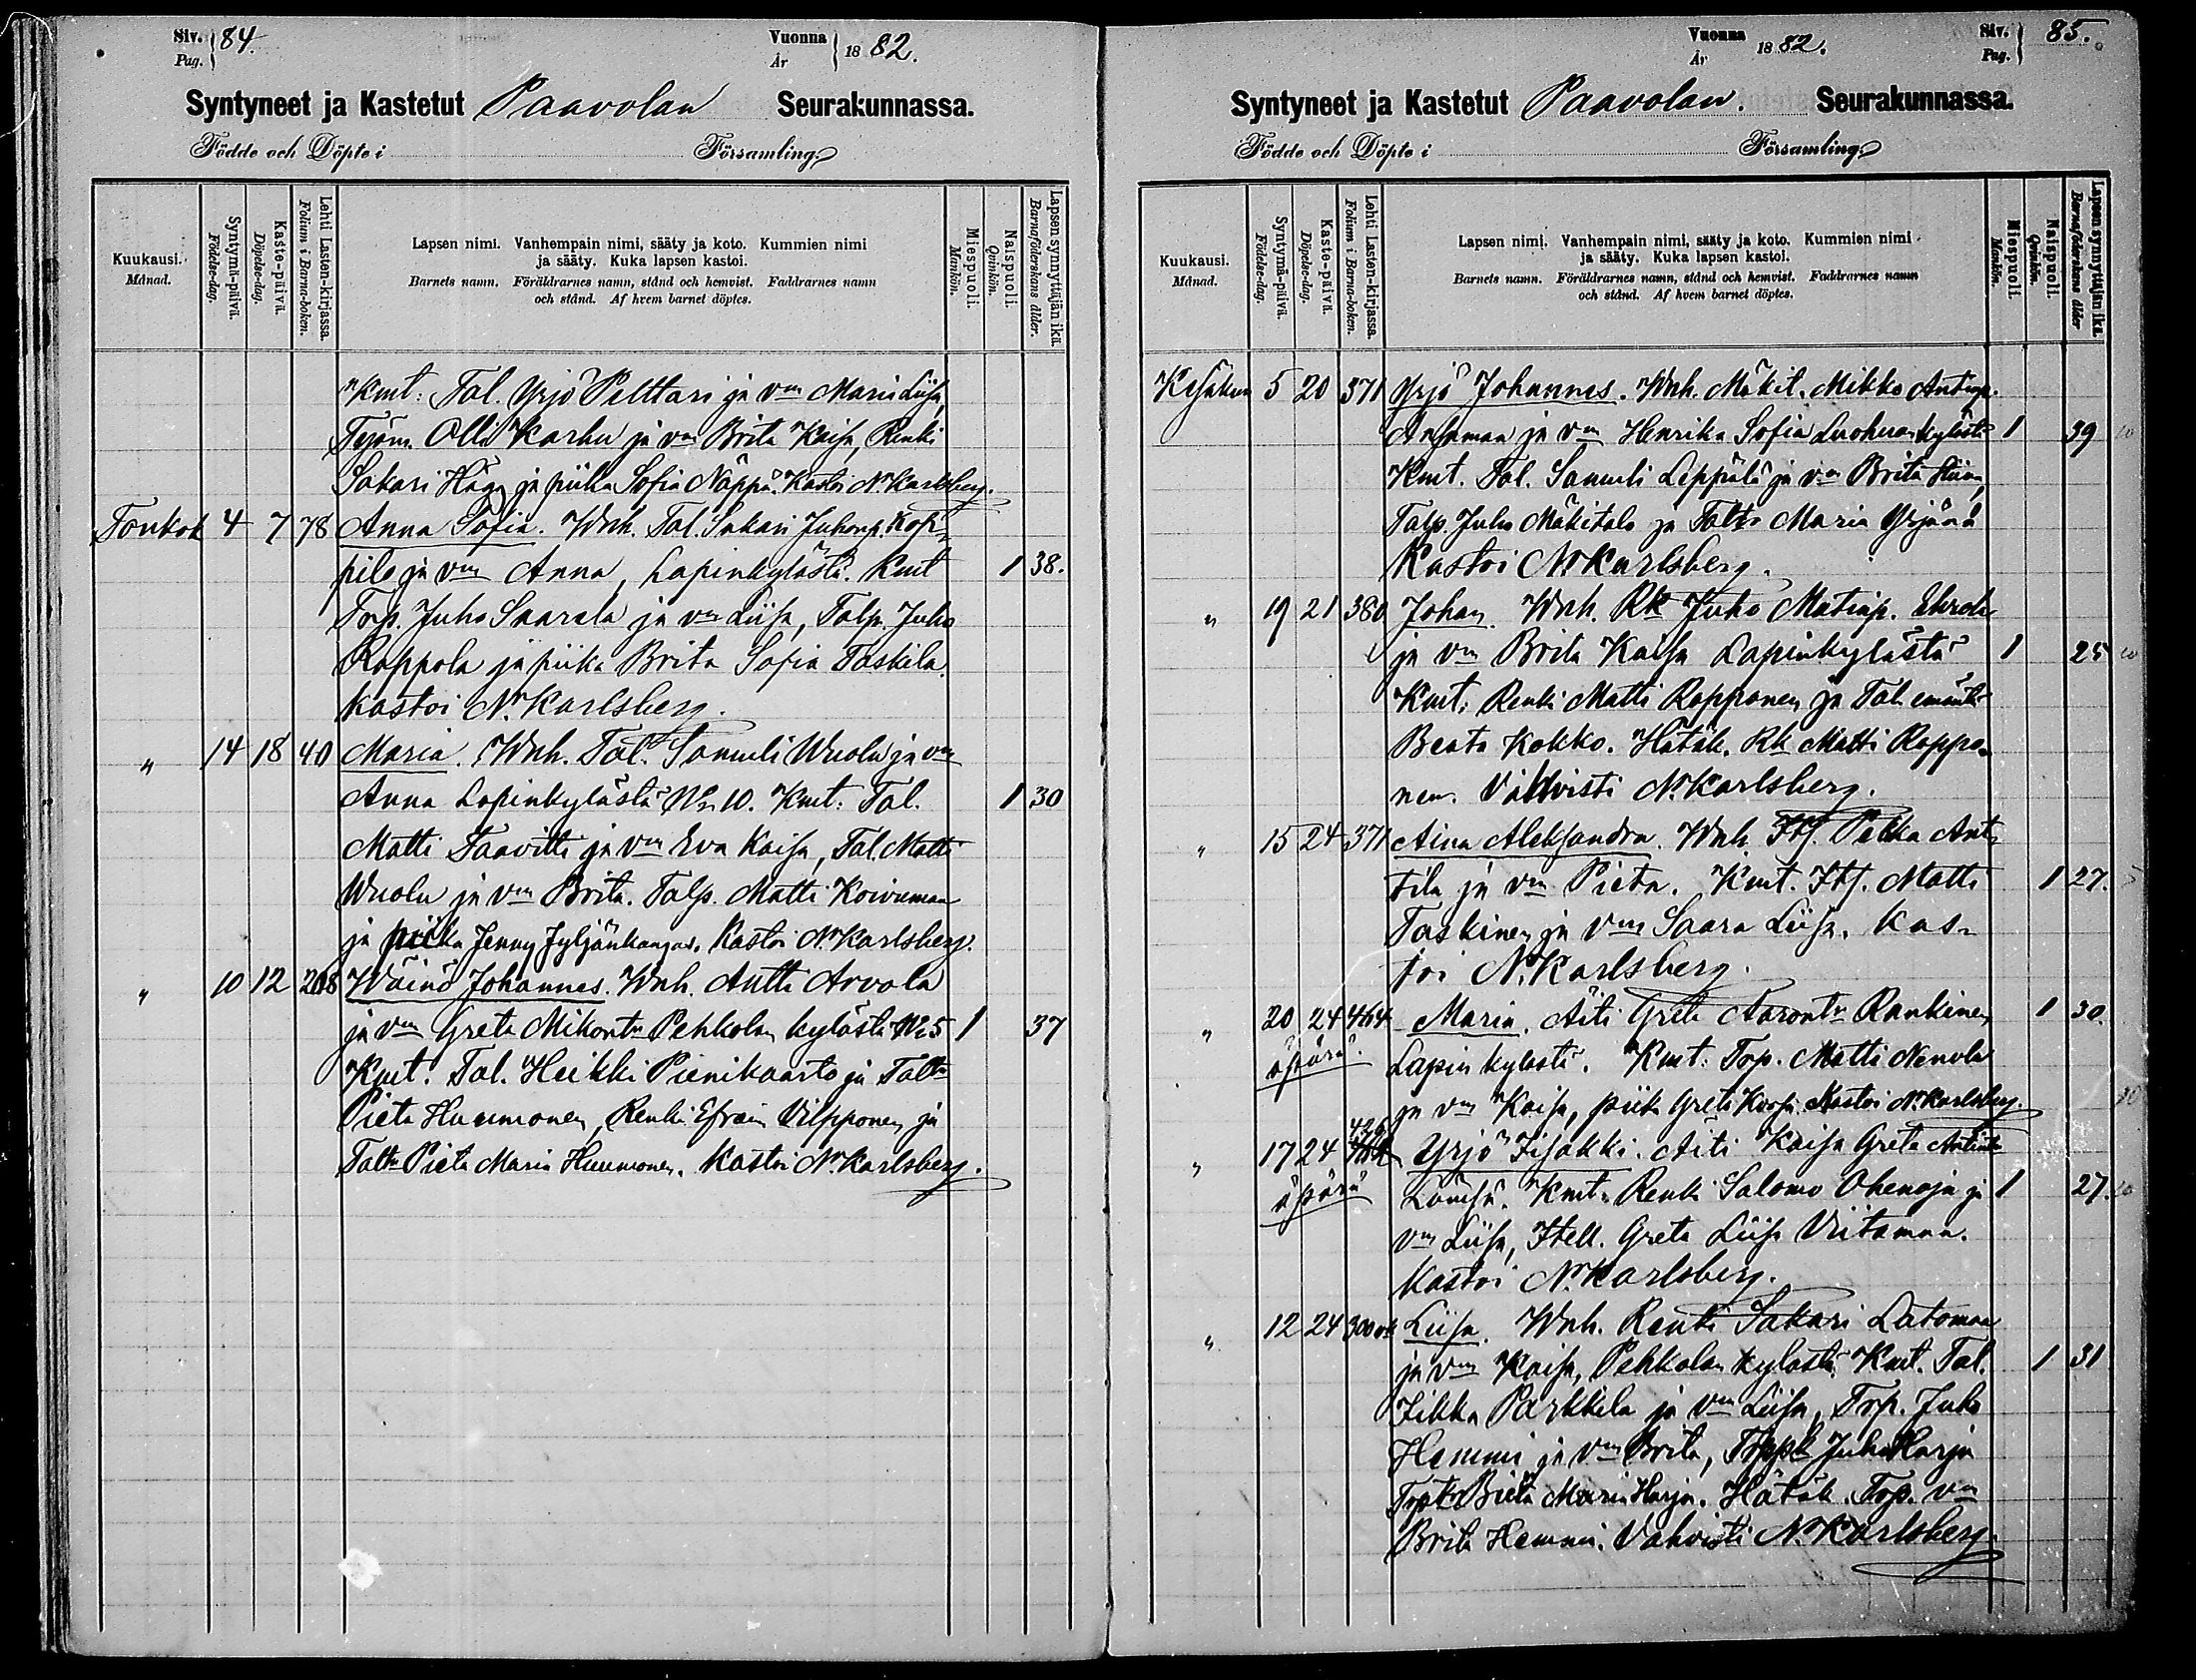 Siv. 84.
Pag.
Vuonna 1882.
År
Syntyneet ja Kastetut Paavolan Seurakunnassa.
Födde och Döpte i Församling.
Kuukausi.
Månad.
Syntymä-päivä.
Födelse-dag.
Kaste-päivä.
Döpelse-dag.
Lehti Lasten-kirjassa.
Folium i Barna-boken.
Lapsen nimi. Vanhempain nimi, sääty ja koto. Kummien nimi
ja sääty. Kuka lapsen kastoi.
Barnets namn. Föräldrarnes namn, stånd och hemvist. Faddrarnes namn
och stånd. Af hvem barnet döptes.
Miespuoli.
Mankön.
Naispuoli.
Qvinkön.
Lapsen synnyttäjän ikä.
Barnaföderskans ålder.
Kmt: Tal. Yrjö Pelttari ja vm Maria Liisa,
Olli Karhu ja vm Brita Kaisa, Renki
Sakari Häg ja piika Sofia Näppä. Kastoi N. Karlsberg.
Toukok 4 7 78 Anna Sofia. Wnh. Tal. Sakari Juhonp. Kop-
pilo ja vm Anna, Lapinkylästä. Kmt 1 38.
Trp. Juho Saarela ja vm Liisa, Talp. Juho
Roppola ja piika Brita Sofia Taskila.
Kastoi N. Karlsberg.
" 14 18 40 Maria. Wnh. Tal. Samuli Wuolu ja vm
Anna Lapinkylästä No 10. Kmt: Tal. 1 30
Matti Taavitti ja vm Eva Kaisa, Tal. Matti
Wuolu ja vm Brita. Talp. Matti Koivumaa
ja piika Jenny Jyljänkangas. Kastoi N. Karlsberg.
" 10 12 208 Wäinö Johannes. Wnh. Antti Arvola
ja vm Greta Mikontr Pehkolan kylästä No 5 1 37
Kmt. Tal. Heikki Pienikaarto ja Taltr
Pieta Huumonen, Renki Efraim Vilpponen ja
Taltr Pieta Maria Huumonen. Kastoi N. Karlsberg.
Vuonna 1882.
År
Siv. 85.
Pag.
Syntyneet ja Kastetut Paavolan. Seurakunnassa.
Födde och Döpte i Församling.
Kuukausi.
Månad.
Syntymä-päivä.
Födelse-dag.
Kaste-päivä.
Döpelse-dag.
Lehti Lasten-kirjassa.
Folium i Barna-boken.
Lapsen nimi. Vanhempain nimi, sääty ja koto. Kummien nimi
ja sääty. Kuka lapsen kastoi.
Barnets namn. Föräldrarnes namn, stånd och hemvist. Faddrarnes namn
och stånd. Af hvem barnet döptes.
Miespuoli.
Mankön.
Naispuoli.
Qvinkön.
Lapsen synnyttäjän ikä.
Barnaföderskans ålder
Kesäkuu 5 20 371 Yrjö Johannes. Wnh. Mäkit. Mikko Antinp.
Ansamaa ja vm Henrika Sofia Luohuan kylästä 1 39
Kmt. Tal. Samuli Leppälä ja vm Brita Stiina,
Talp. Juho Mäkitalo ja Taltr Maria Yrjänä
Kastoi N. Karlsberg.
" 19 21 380 Johan. Wnh. Rk Juho Matinp.
ja vm Brita Kaisa Lapinkylästä 1 25
Kmt: Renki Matti Ropponen ja Tal. emäntä
Beata Kokko. Hätäk. Rk Matti Roppo-
nen. Vahvisti N. Karlsberg.
" 15 24 371 Aina Aleksandra. Wnh. Its. Pekka Ant-
tila ja vm Pieta. Kmt. Its. Matti 1 27.
Taskinen ja vm Saara Liisa. Kas-
toi N. Karlsberg.
" 20 24 464 Maria. Äiti Greta Aarontr Rankinen 1 30.
äpärä. Lapin kylästä. Kmt: Trp. Matti Nenola
ja vm Kaisa, piika Greta Korsu. Kastoi N. Karlsberg.
" 17 24 426 Yrjö Iisakki. Äiti Kaisa Greta Antintr
äpärä Lämsä. Kmt. Renki Salomo Ohenoja ja 1 27.
vm Liisa, Itell. Greta Liisa Viitamaa.
Kastoi N. Karlsberg.
" 12 24 300 Liisa. Wnh. Renki Sakari Latomaa
ja vm Kaisa, Pehkolan kylästä. Kmt. Tal. 1 31
Iikka Parkkila ja vm Liisa, Trp. Juho
Hemmi ja vm Brita, Juho Harju
Trptr Brita Maria Harju. Hätäk. Trp. vm
Brita Hemmi. Vahvisti N. Karlsberg